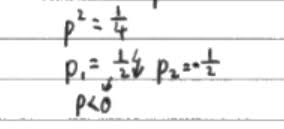 p² = 1/4
p₁ = 1/2 ↯ p₂ = -1/2
p<0